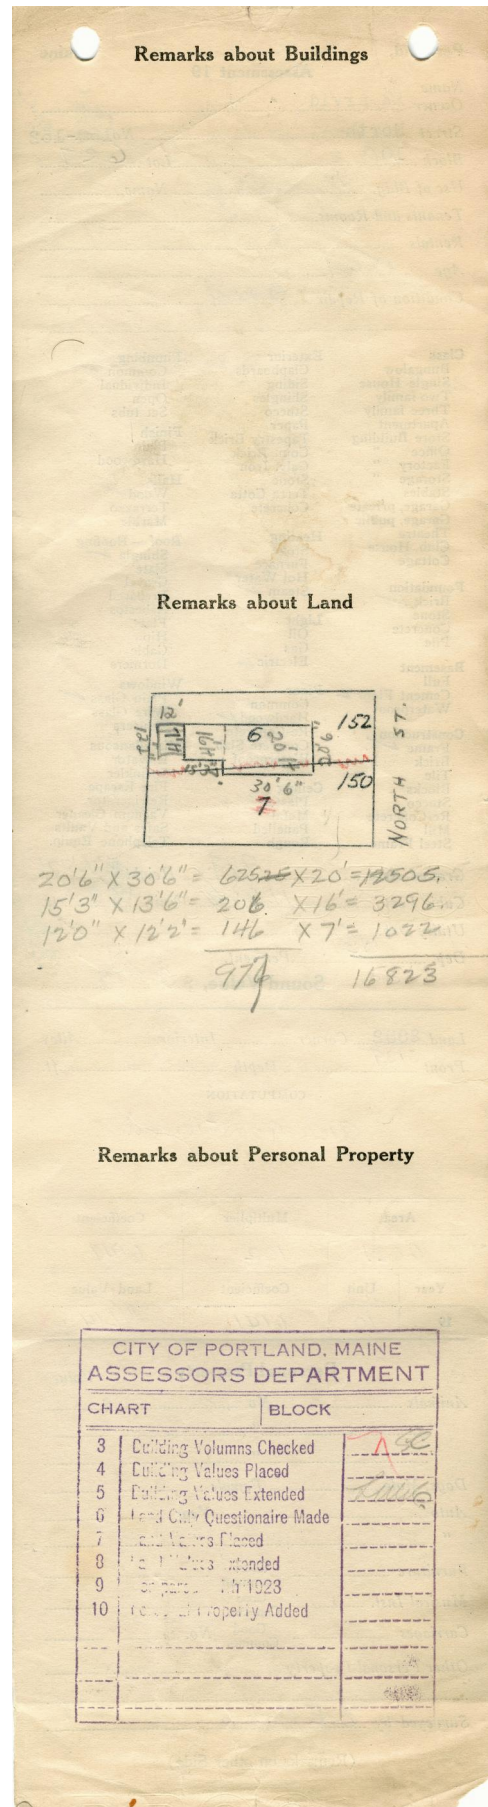 Remarks about Buildings
Remarks about Land
12'
12'2"
7'H
16'H
6
20'H
20'6"
152
15'3"
30'6"
150
7
NORTH ST.
20'6" X 30'6" = 625.25 X 20' = 12505.
15'3" X 13'6" = 206 X 16' = 3296.
12'0" X 12'2" = 146 X 7' = 1022.
976
16823
Remarks about Personal Property
CITY OF PORTLAND, MAINE
ASSESSORS DEPARTMENT
CHART BLOCK
3 Building Volumns Checked GC
4 Building Values Placed
5 Building Values Extended
6 Land Only Questionaire Made
7 Land Values Placed
8 Land Values Extended
9 Compared With 1923
10 Personal Property Added